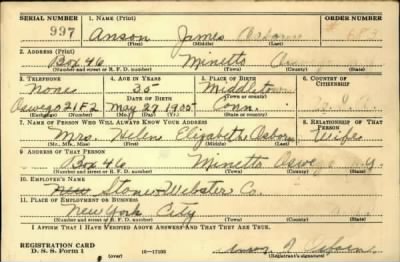 SERIAL NUMBER 1. NAME (Print) ORDER NUMBER
997 Anson James Osborn
(First) (Middle) (Last)
2. ADDRESS (Print)
Box 46 Minetto
(Number and street or R. F. D. number) (Town) (County) (State)
3. TELEPHONE 4. AGE IN YEARS 5. PLACE OF BIRTH 6. COUNTRY OF CITIZENSHIP
None 35 Middletown
DATE OF BIRTH (Town or county)
Oswego 21F2 May 27 1905 Conn.
(Exchange) (No.) (Mo.) (Day) (Yr.) (State or country)
7. NAME OF PERSON WHO WILL ALWAYS KNOW YOUR ADDRESS 8. RELATIONSHIP OF THAT PERSON
Mrs. Helen Elizabeth Osborn Wife
(Mr., Mrs., Miss) (First) (Middle) (Last)
9. ADDRESS OF THAT PERSON
Box 46 Minetto N.Y.
(Number and street or R. F. D. number) (Town) (County) (State)
10. EMPLOYER'S NAME
Stone & Webster Co.
11. PLACE OF EMPLOYMENT OR BUSINESS
New York City
(Number and street or R. F. D. number) (Town) (County) (State)
I AFFIRM THAT I HAVE VERIFIED ABOVE ANSWERS AND THAT THEY ARE TRUE.
REGISTRATION CARD
D. S. S. Form 1 (over) (Registrant's signature)